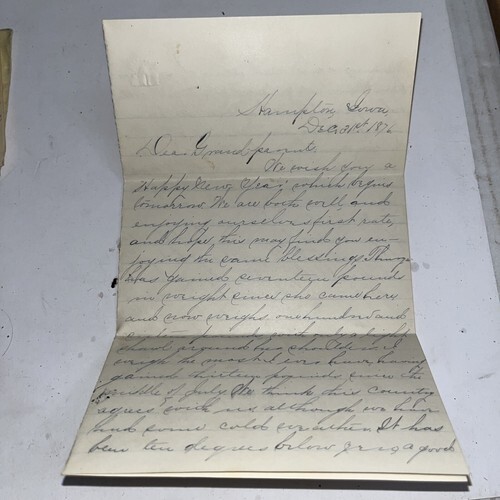 Hampton, Iowa,
Dec. 31st. 1876
Dear Grandparents,
We wish you a
Happy New Year, which begins
tomorrow. We are both well and
enjoying ourselves first rate,
and hope this may find you en-
joying the same blessing.
has gained seventeen pounds
in weight since she came here
and now weighs one hundred and
eighty pounds with a light
shawl around her shoulders. I
weigh the most I ever have, having
gained thirteen pounds since the
middle of July. We think this country
agrees with us although we have
had some cold weather. It has
been ten degrees below zero a good